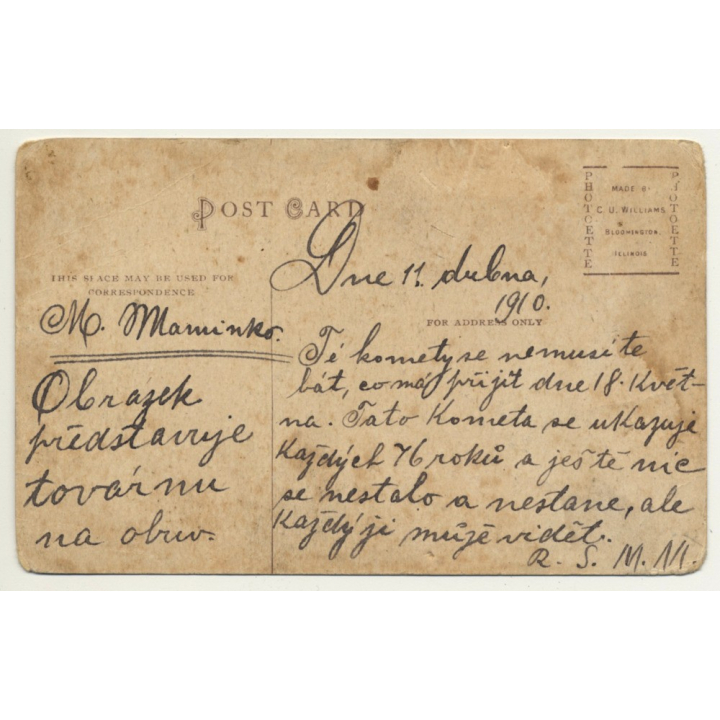 POST CARD
PHOTOETTE
MADE BY
C. U. WILLIAMS
BLOOMINGTON
ILLINOIS
PHOTOETTE
THIS SPACE MAY BE USED FOR
CORRESPONDENCE
FOR ADDRESS ONLY
M. Maminko.
Obrazek
představuje
továrnu
na obuv.
Dne 11. dubna,
1910.
Té komety se nemusíte
bát, co má přijít dne 18. Květ-
na. Tato Kometa se ukazuje
Každých 76 roků a ještě nic
se nestalo a nestane, ale
Každý ji může vidět.
R. S. M. M.